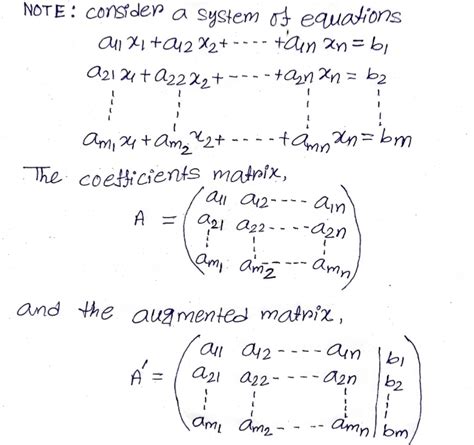 NOTE: consider a system of equations
a11 x1 + a12 x2 + ---- + a1n xn = b1
a21 x1 + a22 x2 + ---- + a2n xn = b2
am1 x1 + am2 x2 + ---- + amn xn = bm
The coefficients matrix,
a11 a12 ---- a1n
A = a21 a22 ---- a2n
am1 am2 ---- amn
and the augmented matrix,
a11 a12 ---- a1n | b1
A' = a21 a22 ---- a2n | b2
am1 am2 ---- amn | bm